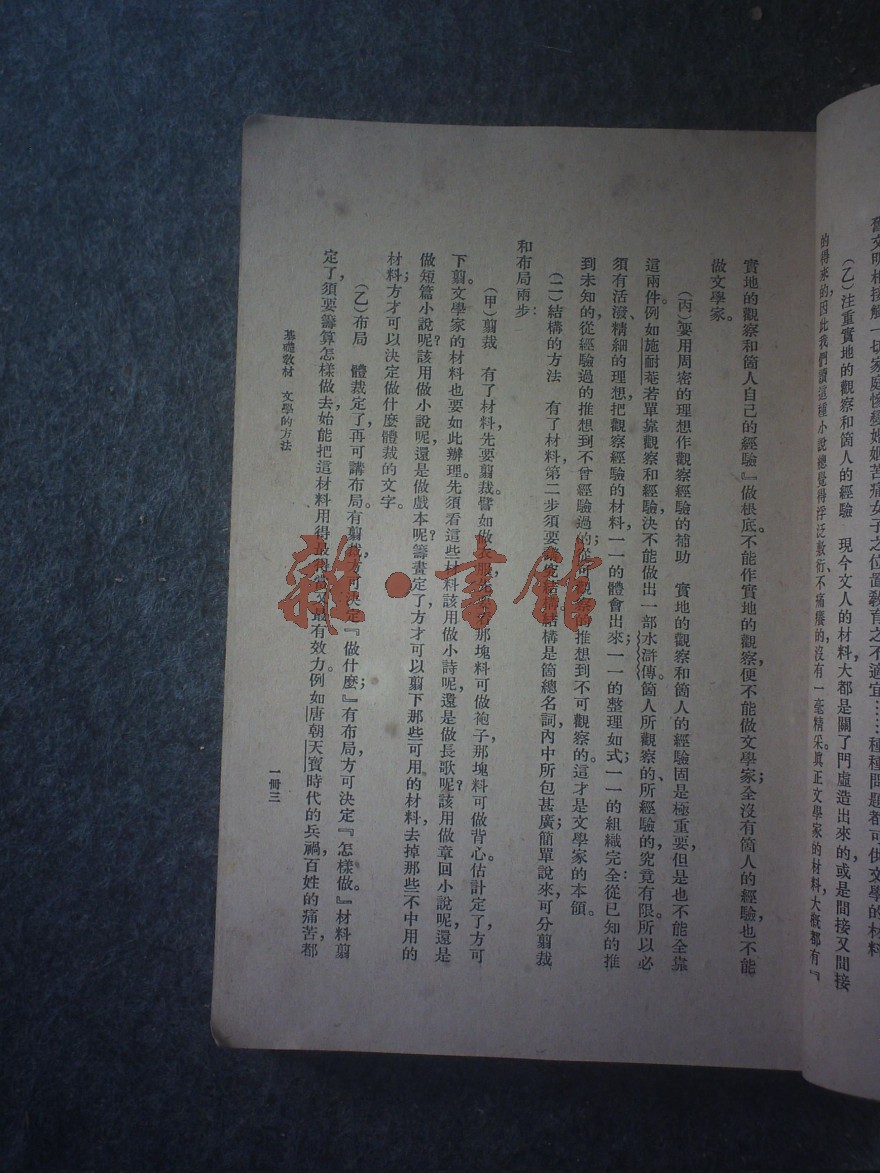 舊文明相接觸一切家庭慘變婚姻苦痛女子之位置教育之不適宜……種種問題都可供文學的材料
（乙）注重實地的觀察和箇人的經驗　現今文人的材料大都是關了門虛造出來的，或是間接又間接
的得來的，因此我們讀這種小說總覺得浮泛敷衍，不痛癢的，沒有一毫精采。眞正文學家的材料大概都有『
實地的觀察和箇人自己的經驗』做根底。不能作實地的觀察，便不能做文學家；全沒有箇人的經驗，也不能
做文學家。
（丙）要用周密的理想作觀察經驗的補助　實地的觀察和箇人的經驗固是極重要，但是也不能全靠
這兩件。例如施耐菴若單靠觀察和經驗，決不能做出一部水滸傳。箇人所觀察的、所經驗的，究竟有限。所以必
須有活潑、精細的理想，把觀察經驗的材料，一一的體會出來；一一的整理如式；一一的組織完全：從已知的推
到未知的，從經驗過的推想到不曾經驗過的，從可觀察的推想到不可觀察的。這才是文學家的本領。
（二）結構的方法　有了材料，第二步須要講究結構。結構是箇總名詞，內中所包甚廣，簡單說來，可分剪裁
和布局兩步：
（甲）剪裁　有了材料，先要剪裁。譬如做衣服，先要看那塊料可做袍子，那塊料可做背心。估計定了，方可
下剪。文學家的材料也要如此辦理。先須看這些材料該用做小詩呢，還是做長歌呢？該用做章回小說呢，還是
做短篇小說呢？該用做小說呢，還是做戲本呢？籌畫定了，方才可以剪下那些可用的材料，去掉那些不中用的
材料；方才可以決定做什麼體裁的文字。
（乙）布局　體裁定了，再可講布局。有剪裁，方可決定『做什麼』；有布局，方可決定『怎樣做。』材料剪
定了，須要籌算怎樣做去始能把這材料用得最得當又最有效力。例如唐朝天寶時代的兵禍，百姓的痛苦，都
基礎教材　文學的方法
一冊三
雜·書館